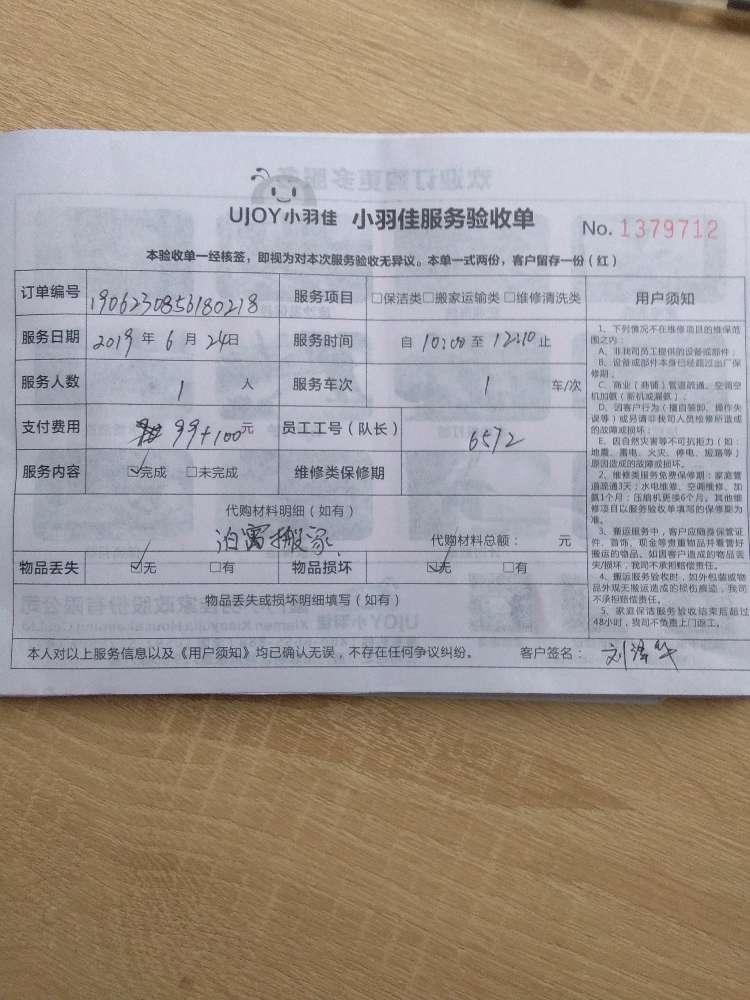 UJOY小羽佳 小羽佳服务验收单 No. 1379712
本验收单一经核签，即视为对本次服务验收无异议。本单一式两份，客户留存一份（红）
订单编号 1906230856180218 服务项目 □保洁类□搬家运输类□维修清洗类
服务日期 2019年6月24日 服务时间 自10:00至12:10止
服务人数 1人 服务车次 1车/次
支付费用 99+100元 员工工号（队长） 6572
服务内容 ☑完成 □未完成 维修类保修期
代购材料明细（如有）
搬家 代购材料总额： 元
物品丢失 ☑无 □有 物品损坏 ☑无 □有
物品丢失或损坏明细填写（如有）
本人对以上服务信息以及《用户须知》均已确认无误，不存在任何争议纠纷。 客户签名： 刘
用户须知
1、下列情况不在维修项目的维保范
围之内：
A、非我司员工提供的设备或部件；
B、设备或部件本身已经超过出厂保
修期。
C、商业（商铺）管道疏通、空调空
机加氨（新机或漏氨）；
D、因客户行为（擅自装卸、操作失
误等）或另请非我司人员检修所造成
的故障或损坏；
E、因自然灾害等不可抗拒力（如：
地震、雷电、火灾、停电、短路等）
原因造成的故障或损坏。
2、维修类服务免费保修期：家庭管
道疏通3天；水电维修、空调维修、加
氨1个月；压缩机更换6个月。其他维
修项目以服务验收单填写的保修期为
准。
3、搬运服务中，客户应随身保管证
件、首饰、现金等贵重物品并看管好
搬运的物品。如因客户造成的物品丢
失/损坏，我司不承担赔偿责任。
4、搬运服务验收时，如外包装或物
品外观无搬运造成的损伤痕迹，我司
不承担赔偿责任。
5、家庭保洁服务验收结束后超过
48小时，我司不负责上门返工。